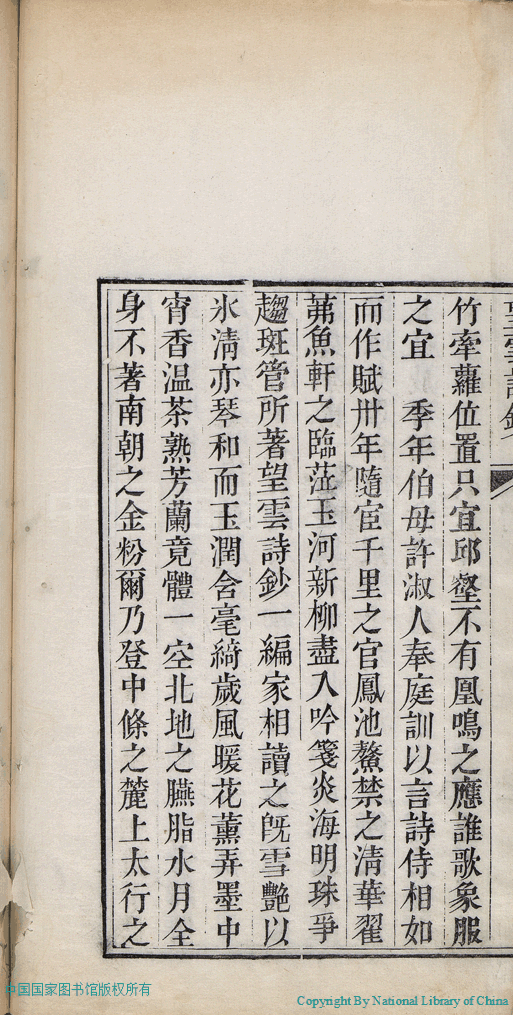 望雲詩鈔
竹牽蘿位置只宜邱壑不有凰鳴之應誰歌象服
之宜　季年伯母許淑人奉庭訓以言詩侍相如
而作賦卅年隨宦千里之官鳳池鰲禁之清華翟
茀魚軒之臨蒞玉河新柳盡入吟箋炎海明珠爭
趨斑管所著望雲詩鈔一編家相讀之旣雪艷以
氷清亦琴和而玉潤含毫綺歲風暖花薰弄墨中
宵香温茶熟芳蘭竟體一空北地之臙脂水月全
身不著南朝之金粉爾乃登中條之麓上太行之
中国国家图书馆版权所有
Copyright By National Library of China